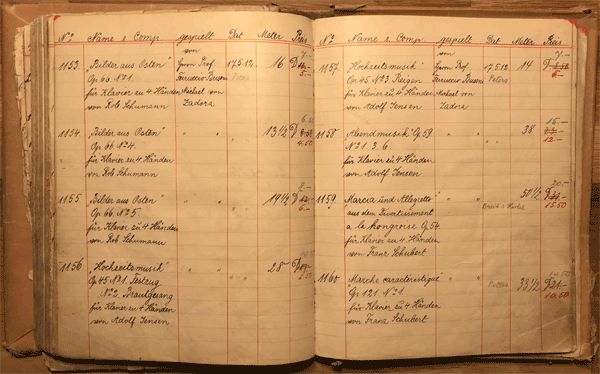 No. Name & Comp. gespielt von Dat Meter Preis
1153. "Bilder aus Osten" Herrn Prof. 17.5.12. 16 7.-
Op. 66. No. 1. Ferruccio Busoni Peters 5.-
für Klavier zu 4 Händen Michael von
von Rob. Schumann Zadora
1154 "Bilder aus Osten" " " 13 1/2 6.50
Op. 66 No. 4. 4.50
für Klavier zu 4 Händen
von Rob. Schumann
1155 "Bilder aus Osten" " " 19 1/2 7.-
Op. 66 No. 5. 6.-
für Klavier zu 4 Händen
von Rob. Schumann
1156 "Hochzeitsmusik" " " 28
Op. 45 No. 1. Festzug
No. 2. Brautgesang
für Klavier zu 4 Händen
von Adolf Jensen
No. Name & Comp. gespielt von Dat Meter Preis
1157. "Hochzeitsmusik" Herrn Prof. 17.5.12. 14 7.-
Op. 45 No. 3 Reigen Ferruccio Busoni Peters 6.-
für Klavier zu 4 Händen Michael von
von Adolf Jensen Zadora
1158 "Abendmusik" Op. 59. " " 38 15.-
No. 1. 3. 6 12.-
für Klavier zu 4 Händen
von Adolf Jensen
1159. "Marcia und Allegretto" " " 50 1/2 20.-
aus dem Divertissement 15.50
a la hongroise Op. 54.
für Klavier zu 4 Händen
von Franz Schubert
1160 "Marche caracteristique" " " 33 1/2
Op. 121 No. 1. Peters 10.50
für Klavier zu 4 Händen
von Franz Schubert